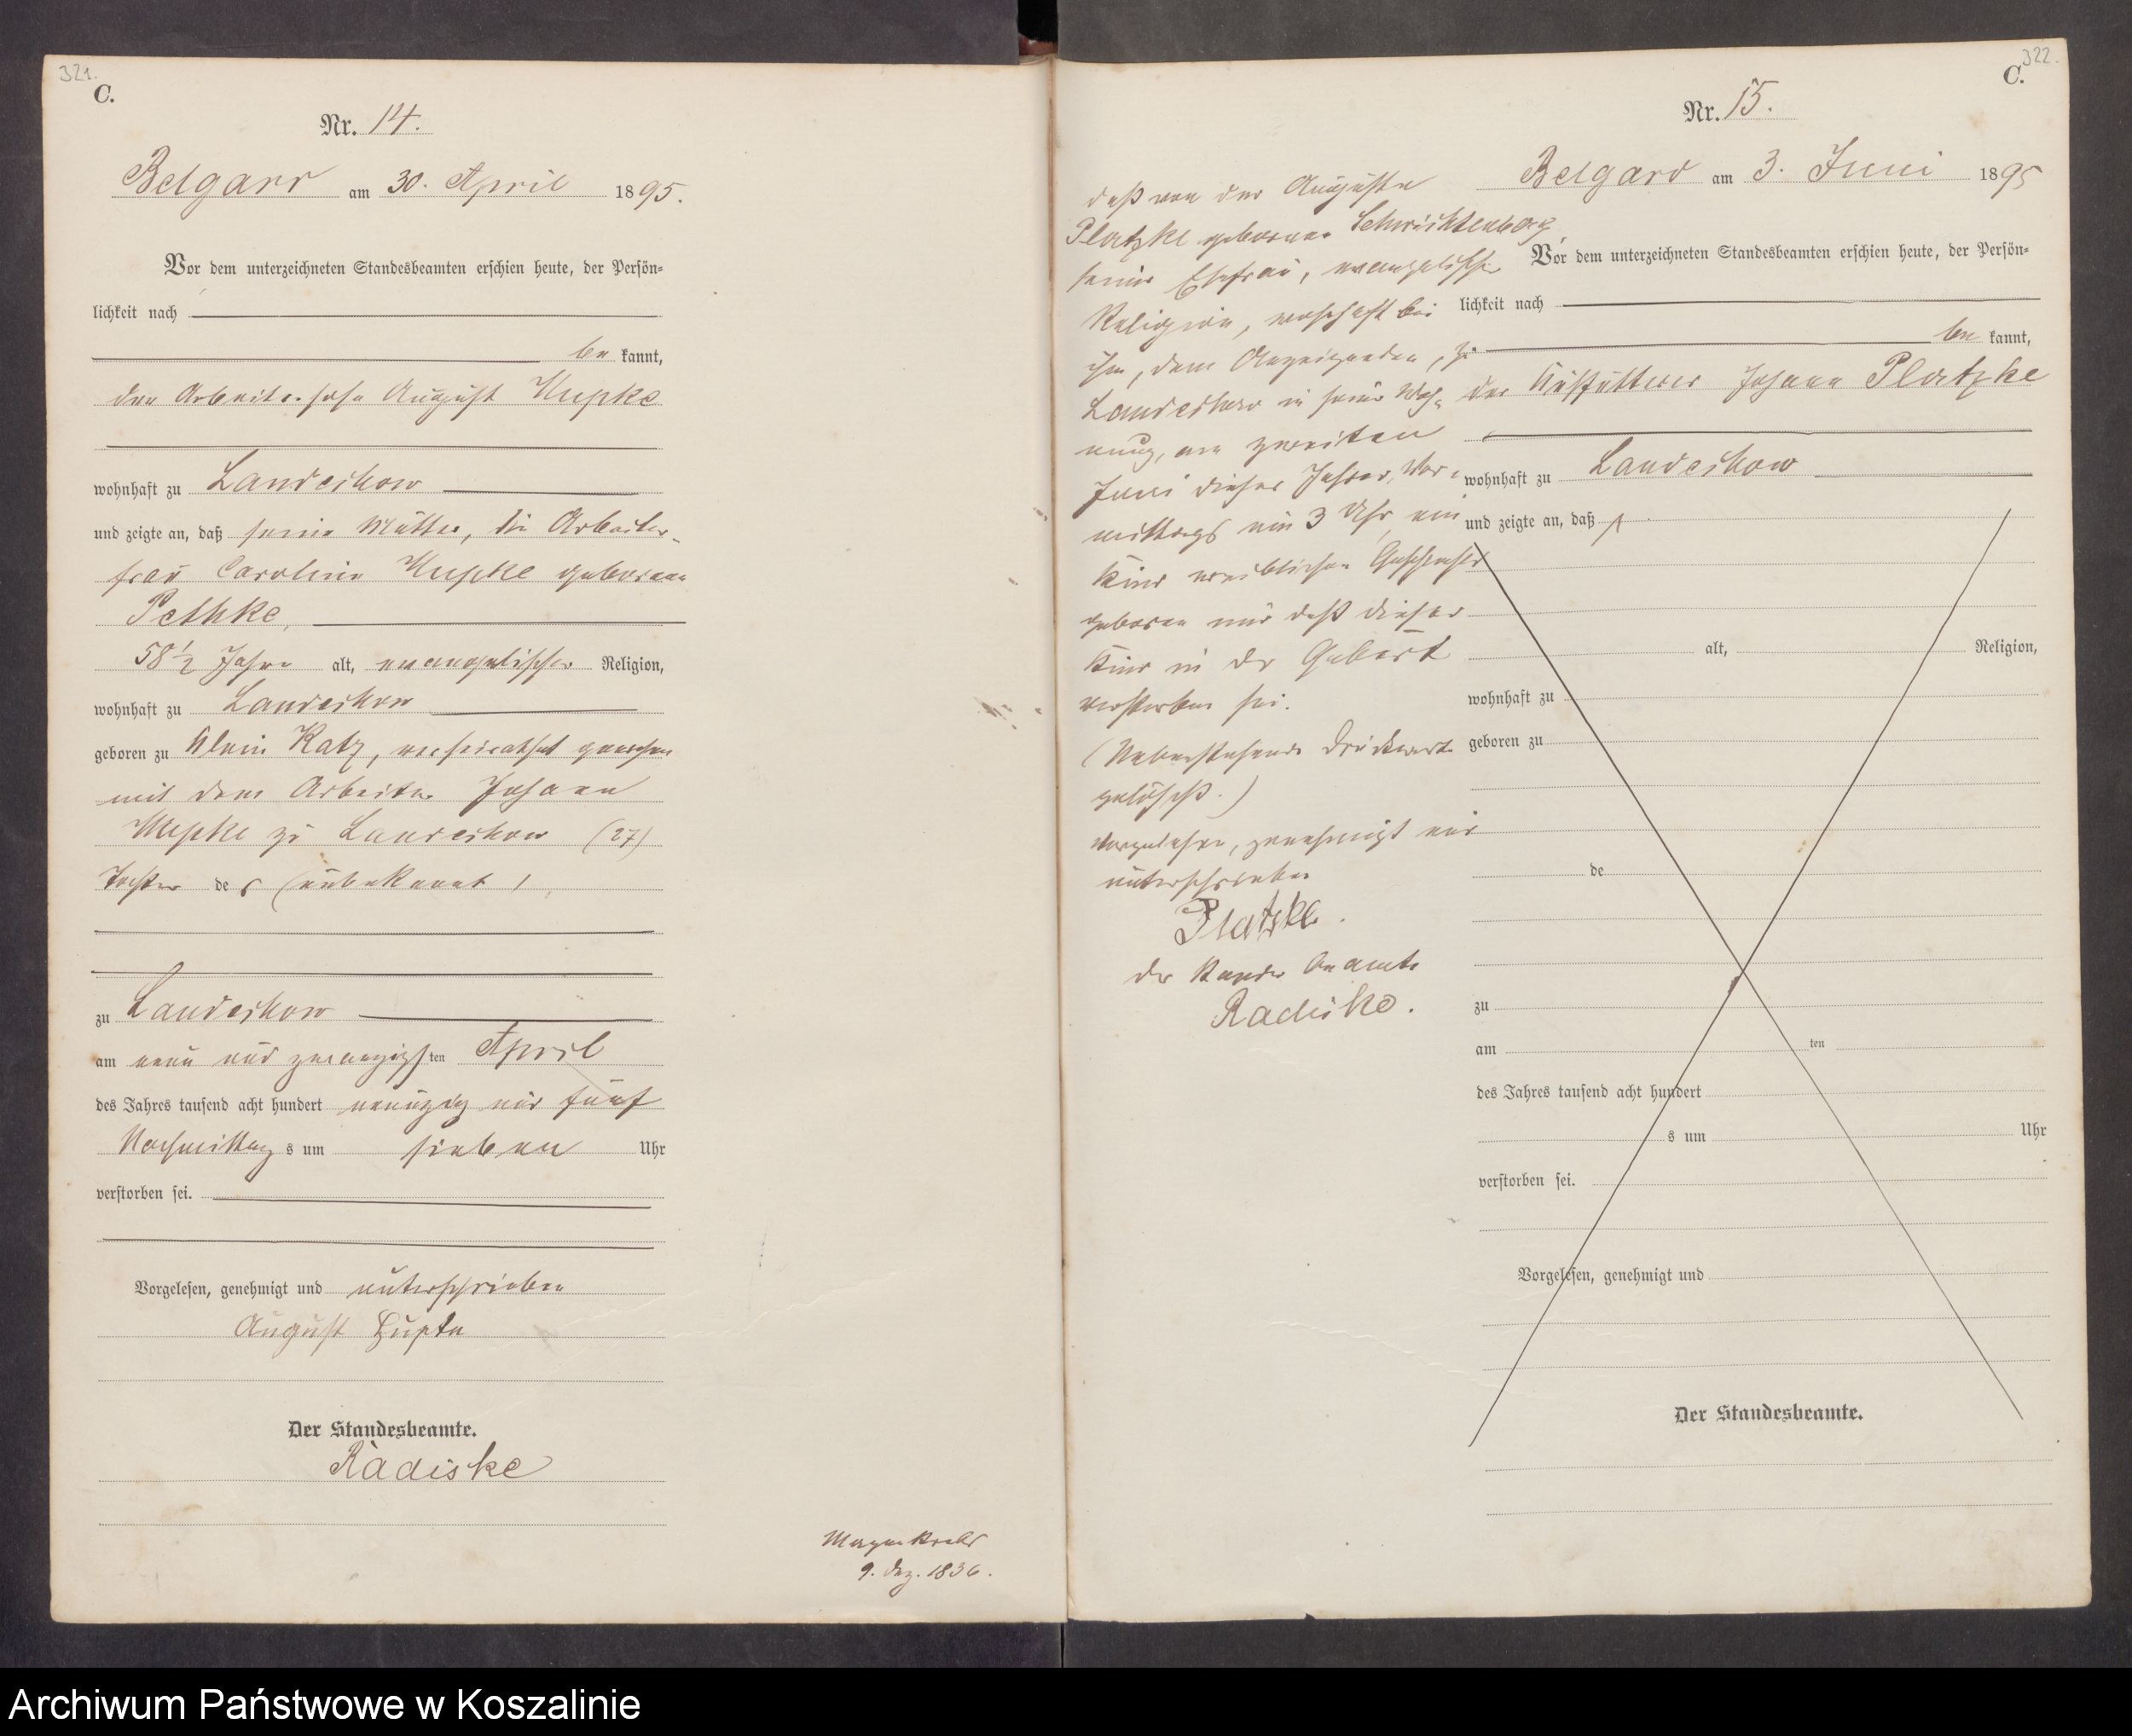 321.
C.
Nr. 14.
Belgard am 30. April 1895.
Vor dem unterzeichneten Standesbeamten erschien heute, der Persön-
lichkeit nach
be kannt,
der Arbeitersohn August Kupke
wohnhaft zu Landechow
und zeigte an, daß seine Mutter, die Arbeiter-
frau Caroline Kupke geborene
Pethke,
58 1/2 Jahre alt, evangelischer Religion,
wohnhaft zu Landechow
geboren zu Klein Katz, verheirathet gewesen
mit dem Arbeiter Johann
Kupke zu Landechow (27)
Tochter de s (unbekannt)
zu Landechow
am neun und zwanzigsten April
des Jahres tausend acht hundert neunzig und fünf
Nachmittag s um sieben Uhr
verstorben sei.
Vorgelesen, genehmigt und unterschrieben
August Kupke
Der Standesbeamte.
Radiske
Magenkrebs
9. Dez. 1836.
322.
C.
Nr. 15.
Belgard am 3. Juni 1895
Vor dem unterzeichneten Standesbeamten erschien heute, der Persön-
lichkeit nach
be kannt,
der Kuhfütterer Johann Platzke
wohnhaft zu Landechow
und zeigte an, daß
alt, Religion,
wohnhaft zu
geboren zu
de
zu
am ten
des Jahres tausend acht hundert
s um Uhr
verstorben sei.
Vorgelesen, genehmigt und
Der Standesbeamte.
daß von der Auguste
Platzke geborene Schwichtenberg
seine Ehefrau, evangelischer
Religion, wohnhaft bei
ihm, dem Anzeigenden, zu
Landechow in seiner Woh-
nung, am zweiten
Juni dieses Jahres, Vor-
mittags um 3 Uhr ein
Kind weiblichen Geschlechts
geboren und daß dieses
Kind in der Geburt
verstorben sei.
(Nebenstehende Druckworte
gelöscht.)
Vorgelesen, genehmigt und
unterschrieben
Platzke.
Der Standesbeamte
Radiske.
Archiwum Państwowe w Koszalinie